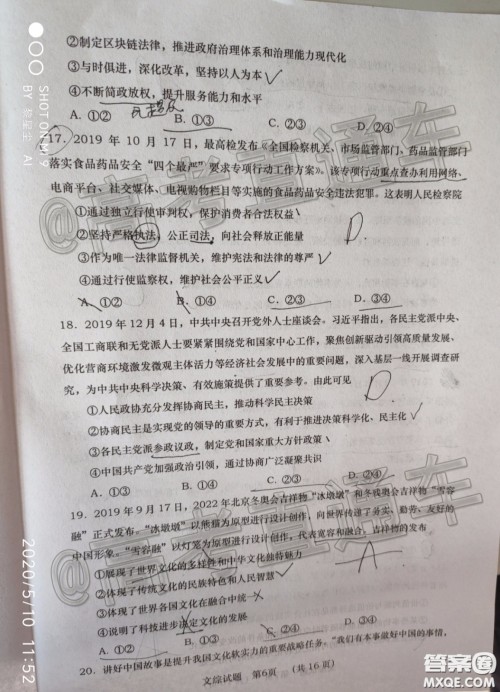 ②制定区块链法律，推进政府治理体系和治理能力现代化
③与时俱进，深化改革，坚持以人为本✓
④不断简政放权，提升服务能力和水平
A. ①② B. ①③ C. ②④ D. ③④
17. 2019 年 10 月 17 日，最高检发布《全国检察机关、市场监管部门、药品监管部门
落实食品药品安全“四个最严”要求专项行动工作方案》。该专项行动重点查办利用网络、
电商平台、社交媒体、电视购物栏目等实施的食品药品安全违法犯罪。这表明人民检察院
①通过独立行使审判权，保护消费者合法权益
②坚持严格执法，公正司法，向社会释放正能量
D.
③作为唯一法律监督机关，维护宪法和法律的尊严✓
④通过行使监察权，维护社会公平正义✓
A. ①② B. ①③ C. ②③ D. ③④
18. 2019 年 12 月 4 日，中共中央召开党外人士座谈会。习近平指出，各民主党派中央、
全国工商联和无党派人士要紧紧围绕党和国家中心工作，聚焦创新驱动引领高质量发展、
优化营商环境激发微观主体活力等经济社会发展中的重要问题，深入基层一线开展调查研
究，为中共中央科学决策、有效施策提供了重要参考。由此可见
D
①人民政协充分发挥协商民主，推动科学民主决策
②协商民主是实现党的领导的重要方式，有利于推进决策科学化、民主化✓
③各民主党派参政议政，制定党和国家重大方针政策
④中国共产党加强政治引领，通过协商广泛凝聚共识
A. ①③ B. ①④ C. ②③ D. ②④
19. 2019 年 9 月 17 日，2022 年北京冬奥会吉祥物“冰墩墩”和冬残奥会吉祥物“雪容
融”正式发布。“冰墩墩”以熊猫为原型进行设计创作，向世界传递了务实、勤劳、友好的
中国形象。“雪容融”以灯笼为原型进行设计创作，代表宽容和融合。吉祥物的发布
A
①展现了世界文化的多样性和中华文化独特魅力
②体现了传统文化的民族特色和人民智慧✓
③体现了世界各国文化在融合中统一
④说明了科技进步决定文化的发展
A. ①② B. ①③ C. ②④ D. ③④
20. 讲好中国故事是提升我国文化软实力的重要战略任务。“我们有本事做好中国的事情，
文综试题 第6页 (共 16 页)
SHOT ON MI 9
2020/5/10 11:52
@高考直通车
答案圈
MXQE.COM